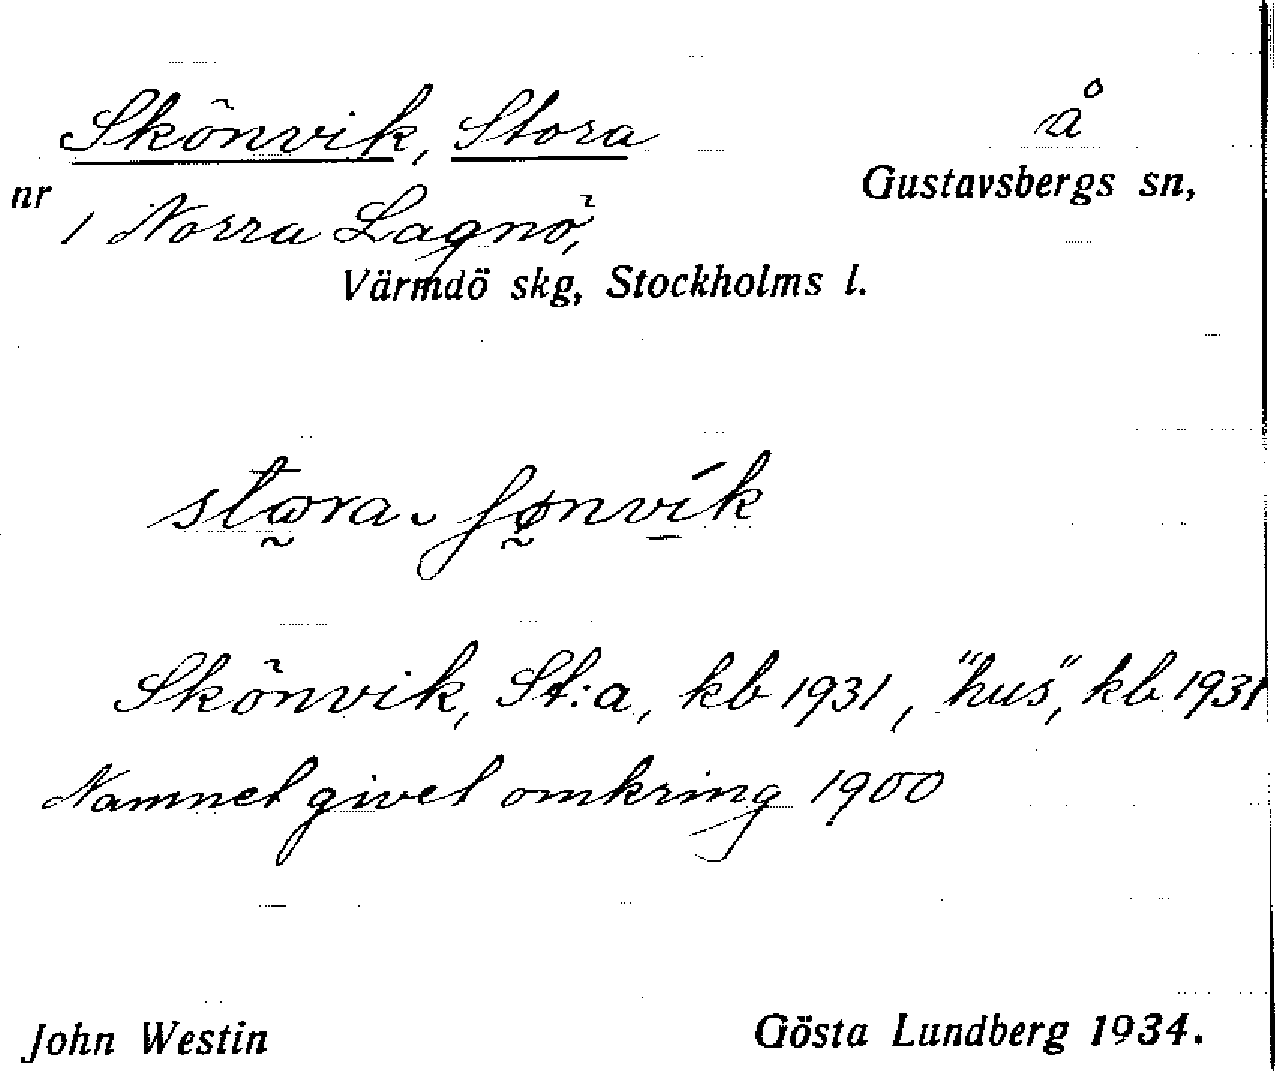 Skönvik, Stora å
nr Gustavsbergs sn,
1 Norra Lagnö,
Värmdö skg, Stockholms l.
Skönvik, St:a, kb 1931, "hus", kb 1931
Namnet givet omkring 1900
John Westin Gösta Lundberg 1934.